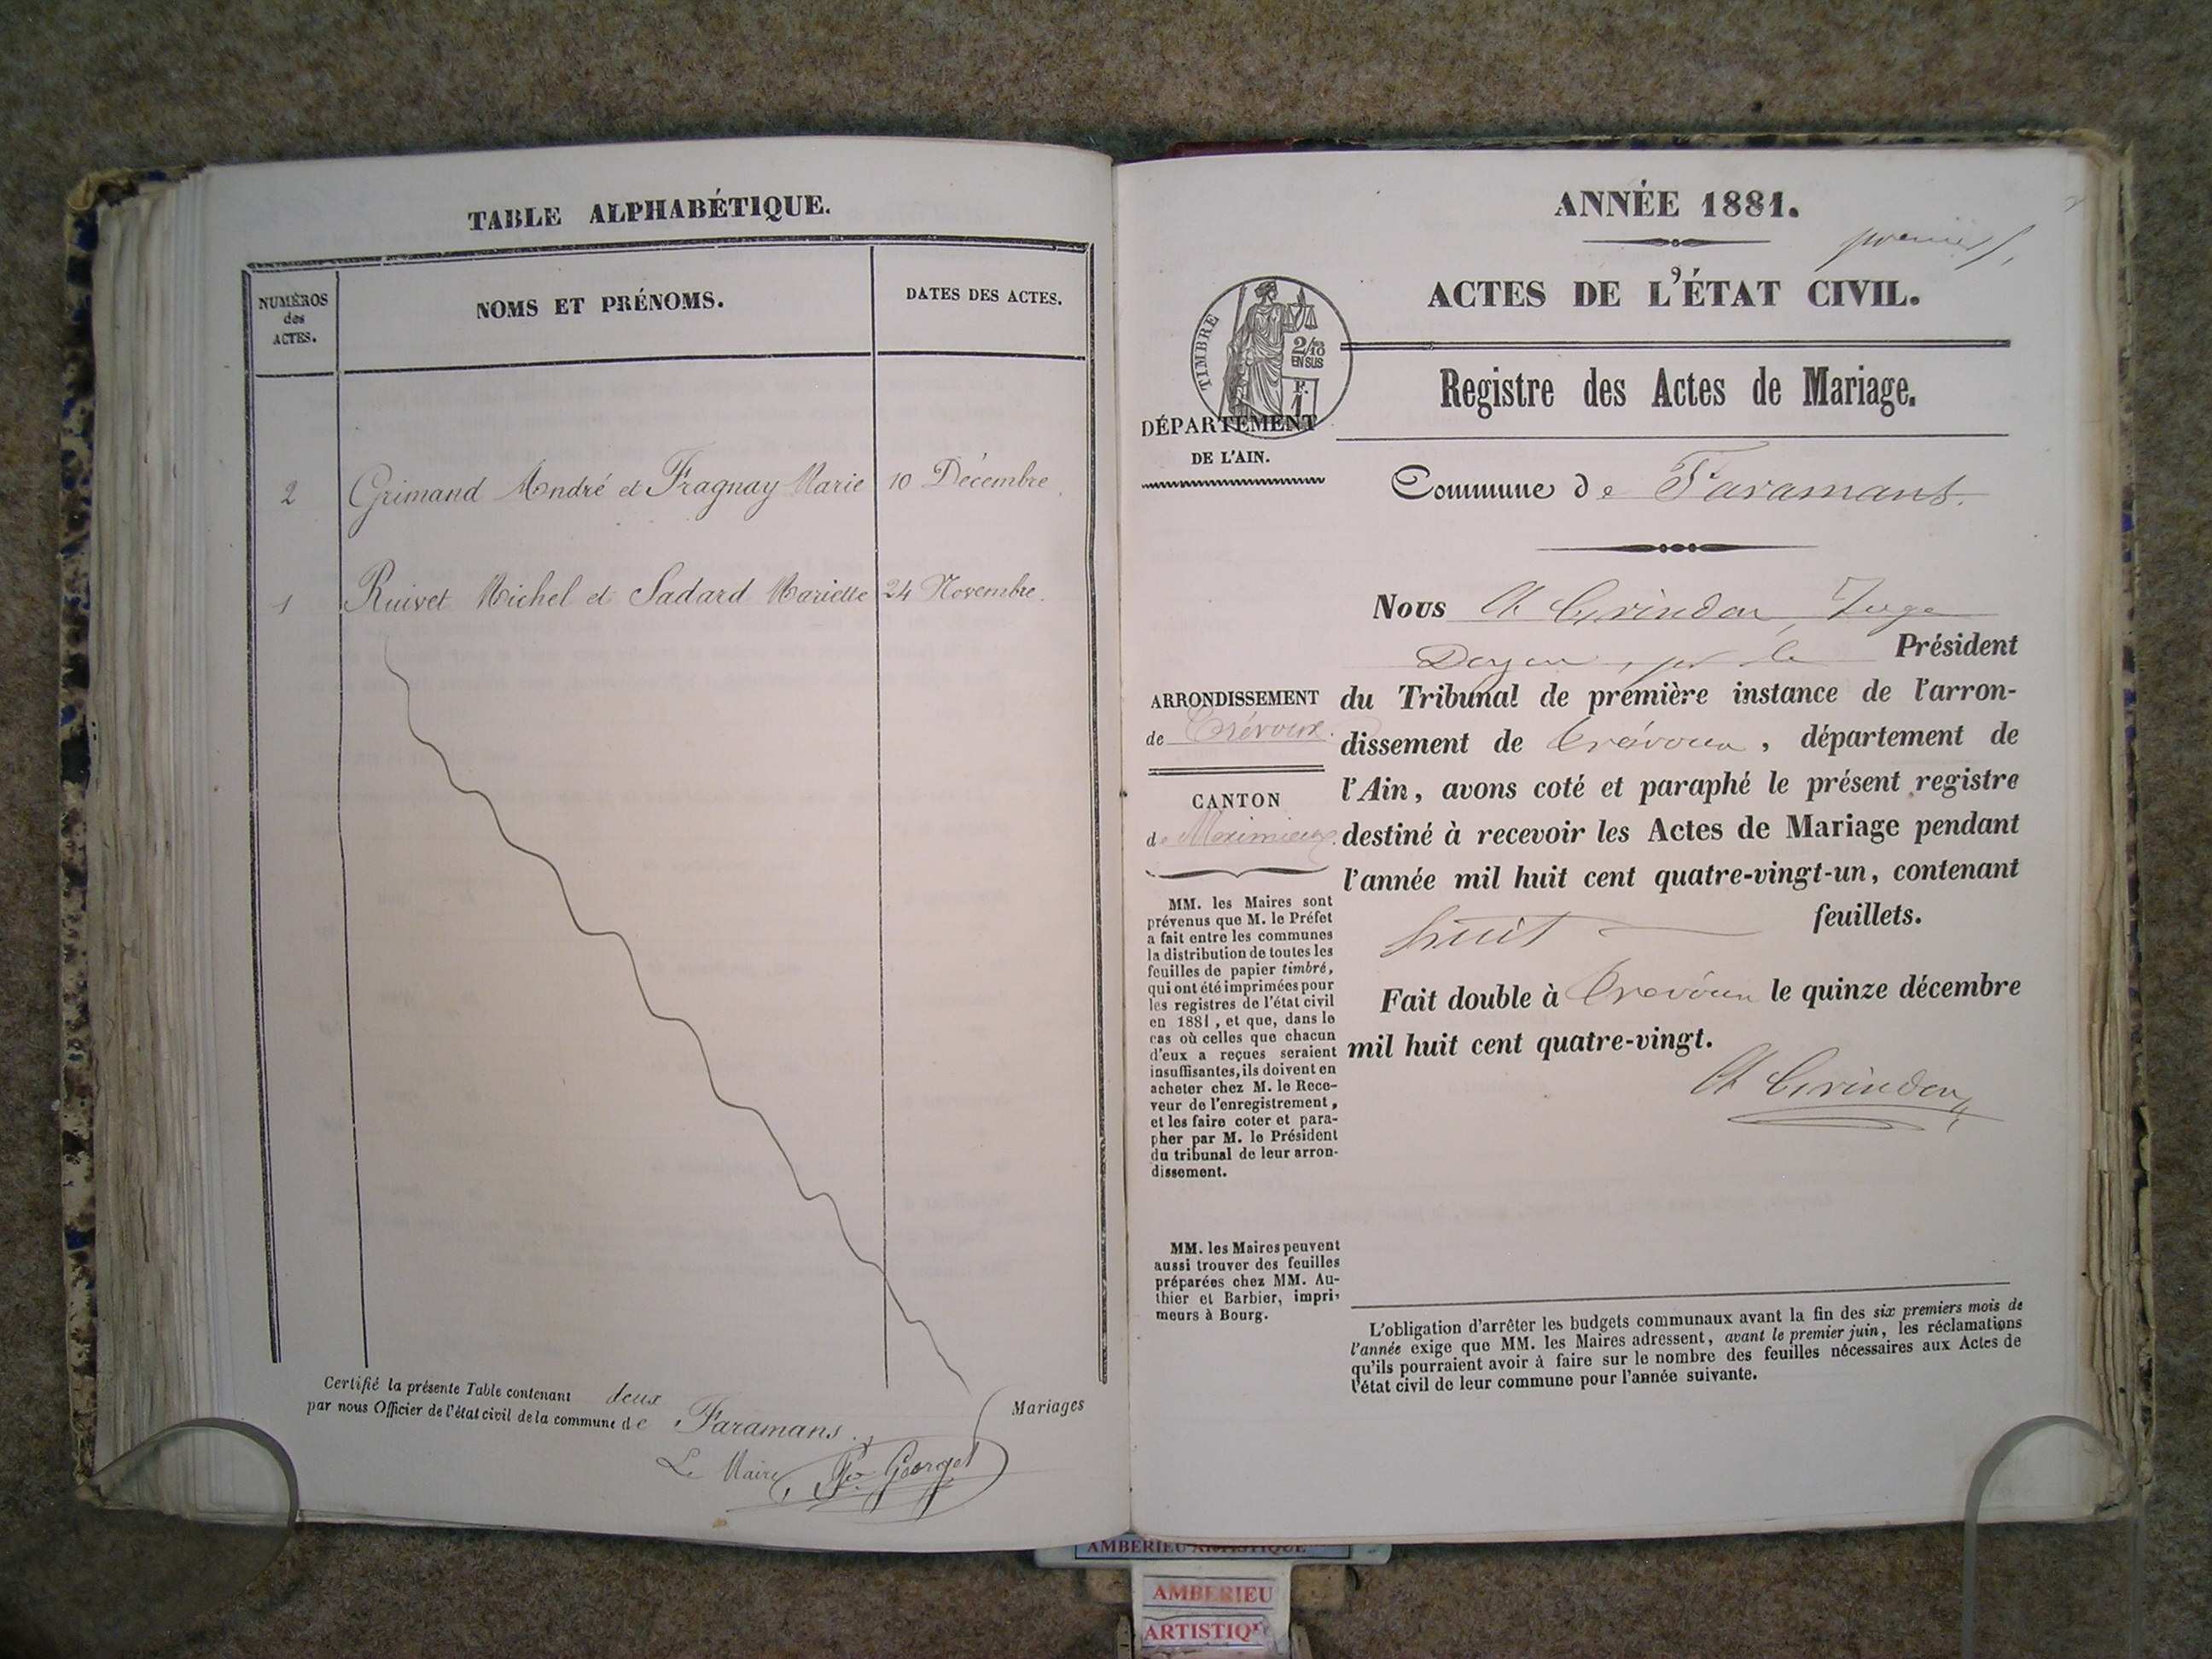 TABLE ALPHABÉTIQUE.
NUMÉROS
des
ACTES.
NOMS ET PRÉNOMS.
DATES DES ACTES.
2 Grimand André et Fragnay Marie 10 Décembre.
1 Ruivet Michel et Sadard Mariette 24 Novembre.
Certifié la présente Table contenant deux Mariages
par nous Officier de l'état civil de la commune de Faramans.
Le Maire
Georget
ANNÉE 1881.
premier
ACTES DE L'ÉTAT CIVIL.
TIMBRE
2/10
EN SUS
F.
1
Registre des Actes de Mariage.
DÉPARTEMENT
DE L'AIN.
Commune de Faramans.
ARRONDISSEMENT
de Trévoux.
CANTON
de Meximieux.
MM. les Maires sont
prévenus que M. le Préfet
a fait entre les communes
la distribution de toutes les
feuilles de papier timbré,
qui ont été imprimées pour
les registres de l'état civil
en 1881, et que, dans le
cas où celles que chacun
d'eux a reçues seraient
insuffisantes, ils doivent en
acheter chez M. le Rece-
veur de l'enregistrement,
et les faire coter et para-
pher par M. le Président
du tribunal de leur arron-
dissement.
MM. les Maires peuvent
aussi trouver des feuilles
préparées chez MM. Au-
thier et Barbier, impri-
meurs à Bourg.
Nous Ch Grindon, Juge
Doyen, pr le Président
du Tribunal de première instance de l'arron-
dissement de Trévoux, département de
l'Ain, avons coté et paraphé le présent registre
destiné à recevoir les Actes de Mariage pendant
l'année mil huit cent quatre-vingt-un, contenant
huit feuillets.
Fait double à Trévoux le quinze décembre
mil huit cent quatre-vingt.
Ch Grindon
L'obligation d'arrêter les budgets communaux avant la fin des six premiers mois de
l'année exige que MM. les Maires adressent, avant le premier juin, les réclamations
qu'ils pourraient avoir à faire sur le nombre des feuilles nécessaires aux Actes de
l'état civil de leur commune pour l'année suivante.
AMBERIEU ARTISTIQUE
AMBERIEU
ARTISTIQUE